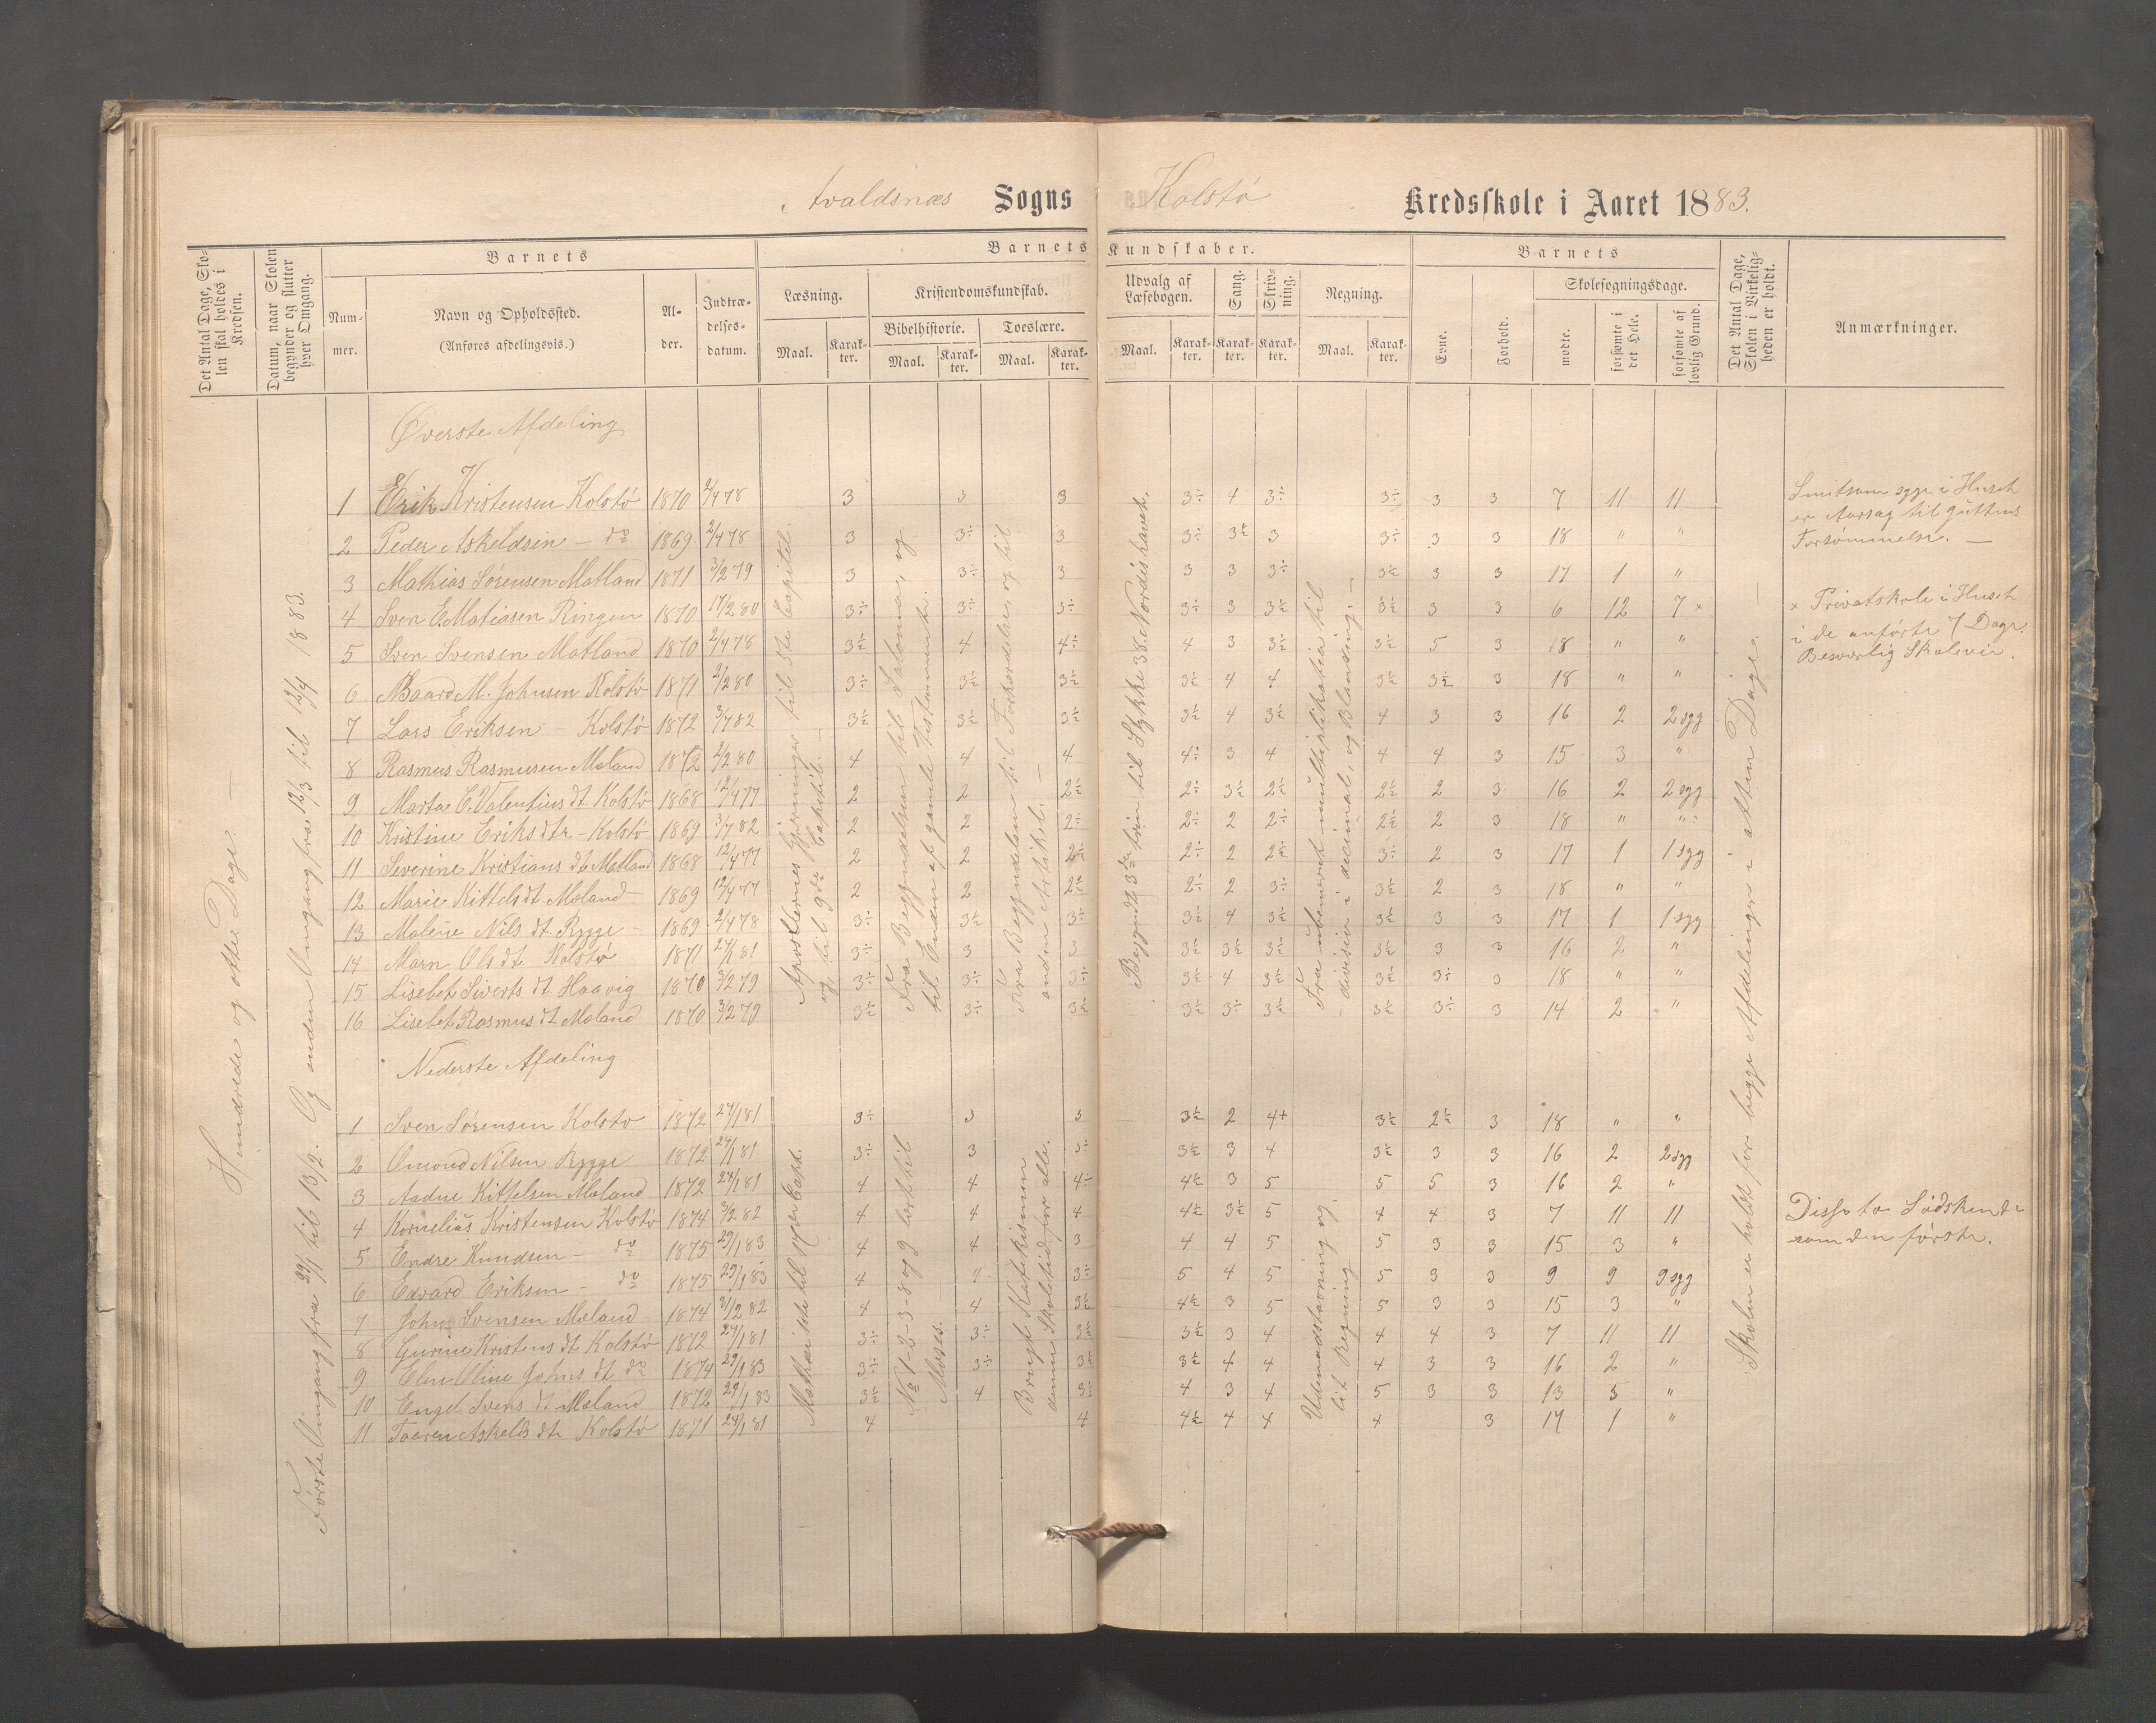 Avaldsnæs Sogns Kolstø Kredsskole i Aaret 1883.
Det Antal Dage, Skolen skal holdes i Kredsen.
Datum, naar Skolen begynder og slutter hver Omgang.
Barnets
Nummer.
Navn og Opholdssted.
(Anføres afdelingsvis.)
Alder.
Indtrædelsesdatum.
Barnets Kundskaber.
Læsning.
Kristendomskundskab.
Bibelhistorie.
Troeslære.
Maal. Karakter. Maal. Karakter. Maal. Karakter.
Udvalg af Læsebogen.
Sang.
Skrivning.
Regning.
Maal. Karakter. Karakter. Karakter. Maal. Karakter.
Barnets
Evne.
Forhold.
Skolesøgningsdage.
mødte.
forsømte i det Hele.
forsømte af lovlig Grund.
Det Antal Dage, Skolen i Virkeligheden er holdt.
Anmærkninger.
Hundrede og otte Dage —
Første Omgang fra 29/1 til 13/2. Og anden Omgang fra 12/3 til 12/4 1883.
Øverste Afdeling
1 Erik Kristensen Kolstø 1870 2/4 78 3 3 3 3÷ 4 3÷ 3÷ 3 3 7 11 11
2 Peder Askeldsen — do 1869 2/4 78 3 3÷ 3 3÷ 3½ 3 3÷ 3 3 18 " "
3 Mathias Sørensen Matland 1871 3/2 79 3 3÷ 3 3 3 3÷ 3½ 3 3 17 1 "
4 Sven E. Matiasen Ringen 1870 17/2 80 3÷ 3÷ 3÷ 3÷ 3 3½ 3½ 3 3 6 12 7 ×
5 Sven Svensen Matland 1870 2/4 78 3½ 4 4÷ 4 3 3½ 3½ 5 3 18 " "
6 Baard M. Johnsen Kolstø 1871 2/2 80 3÷ 3½ 3½ 3½ 4 4 3½ 3½ 3 18 " "
7 Lars Eriksen — Kolstø 1872 3/7 82 3½ 3½ 3½ 3½ 4 3½ 4 3 3 16 2 2 syg
8 Rasmus Rasmusen Mæland 1872 2/2 80 4 4 4 4÷ 3 4 4 4 3 15 3 "
9 Marta E. Valentins dt Kolstø 1868 12/4 77 2 2 2½ 2÷ 3½ 2½ 2½ 2 3 16 2 2 syg
10 Kristine Eriks dtr — Kolstø 1869 3/7 82 2 2 2÷ 2÷ 2 2÷ 2½ 2 3 18 " "
11 Severine Kristians dt Matland 1868 12/4 77 2 2 2½ 2÷ 2 2½ 3÷ 2 3 17 1 1 syg
12 Marie Kittels dt Mæland 1869 12/4 77 2 2 2½ 2÷ 2 3÷ 3½ 2 3 18 " "
13 Malene Nils dt Rygge — 1869 2/4 78 3÷ 3½ 3÷ 3½ 4 3½ 3½ 3 3 17 1 1 syg
14 Marn Ols dt Kolstø 1871 24/1 81 3÷ 3 3 3½ 3½ 3½ 3½ 3 3 16 2 "
15 Lisebet Siverts dt Haavig 1870 3/2 79 3÷ 3÷ 3÷ 3½ 4 3½ 3½ 3÷ 3 18 " "
16 Lisebet Rasmus dt Mæland 1870 3/2 79 3½ 3÷ 3½ 3½ 3÷ 3½ 3½ 3÷ 3 14 2 "
Apostlernes Gjerninger til 5te Capitel
og til 9de Capitel. —
Fra Begyndelsen til Salomo, og
til Enden af gamle Testamente.
Fra Begyndelsen til Forsoeder, og til
anden Artikel. —
Begyndt 3de trin til Stykke 38: Nordishavet.
Fra ubenevnt multiplikatia til
division i decimal, og Blanding. —
Smitsom syge i Huset
er Aarsag til guttens
Forsømmelse. —
× Privatskole i Huset
i de anførte 7 Dage.
Besværlig Skolevei.
Nederste Afdeling
1 Sven Sørensen Kolstø 1872 24/1 81 3÷ 3 3 3½ 2 4+ 3½ 2½ 3 18 " "
2 Omond Nilsen Rygge 1872 24/1 81 3÷ 3 3÷ 3½ 3 4 3½ 3 3 16 2 2 syg
3 Aadne Kittelsen Mæland 1872 24/1 81 4 4 4÷ 4½ 3 5 5 5 3 16 2 "
4 Kornelius Kristensen Kolstø 1874 3/2 82 4 4 4 4½ 3½ 5 4 4 3 7 11 11
5 Endre Knudsen — do 1875 29/1 83 4 4 3 4 4 5 5 3 3 15 3 "
6 Edvard Eriksen — do 1875 29/1 83 4 4 3÷ 5 4 5 5 3 3 9 9 9 syg
7 John Svensen Mæland 1874 3/2 82 4 4 3½ 4½ 3 5 5 3 3 15 3 "
8 Gurine Kristens dt Kolstø 1872 24/1 81 3÷ 3÷ 3½ 3½ 3 4 4 4 3 7 11 11
9 Elen Oline Johns dt do 1874 29/1 83 3÷ 3÷ 3½ 3½ 4 4 4 3 3 16 2 "
10 Engel Svens dt Mæland 1872 29/1 83 3½ 4 3½ 4 3 4 5 3 3 13 5 "
11 Taaren Askelds dt Kolstø 1871 24/1 81 4 4 4½ 4 4 4 3 17 1 "
Mathæi 1ste til 17en Capt.
No 1-2-3-8 og 9 læst til
Moses.
Brugt Katekismen
denne Skoletid for alle.
Udenadsstavning og
lit Regning
Skolen er holdt for begge Afdelinger i atten Dage —
Disse to Sødskende
som den første.